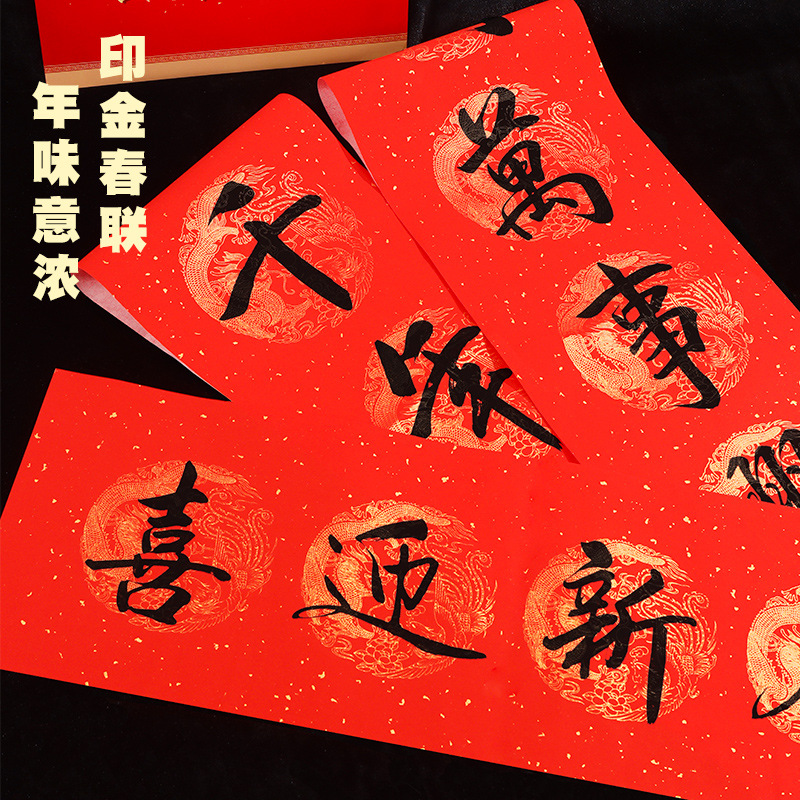 印金春联
年味意浓
萬事
千家
喜迎新